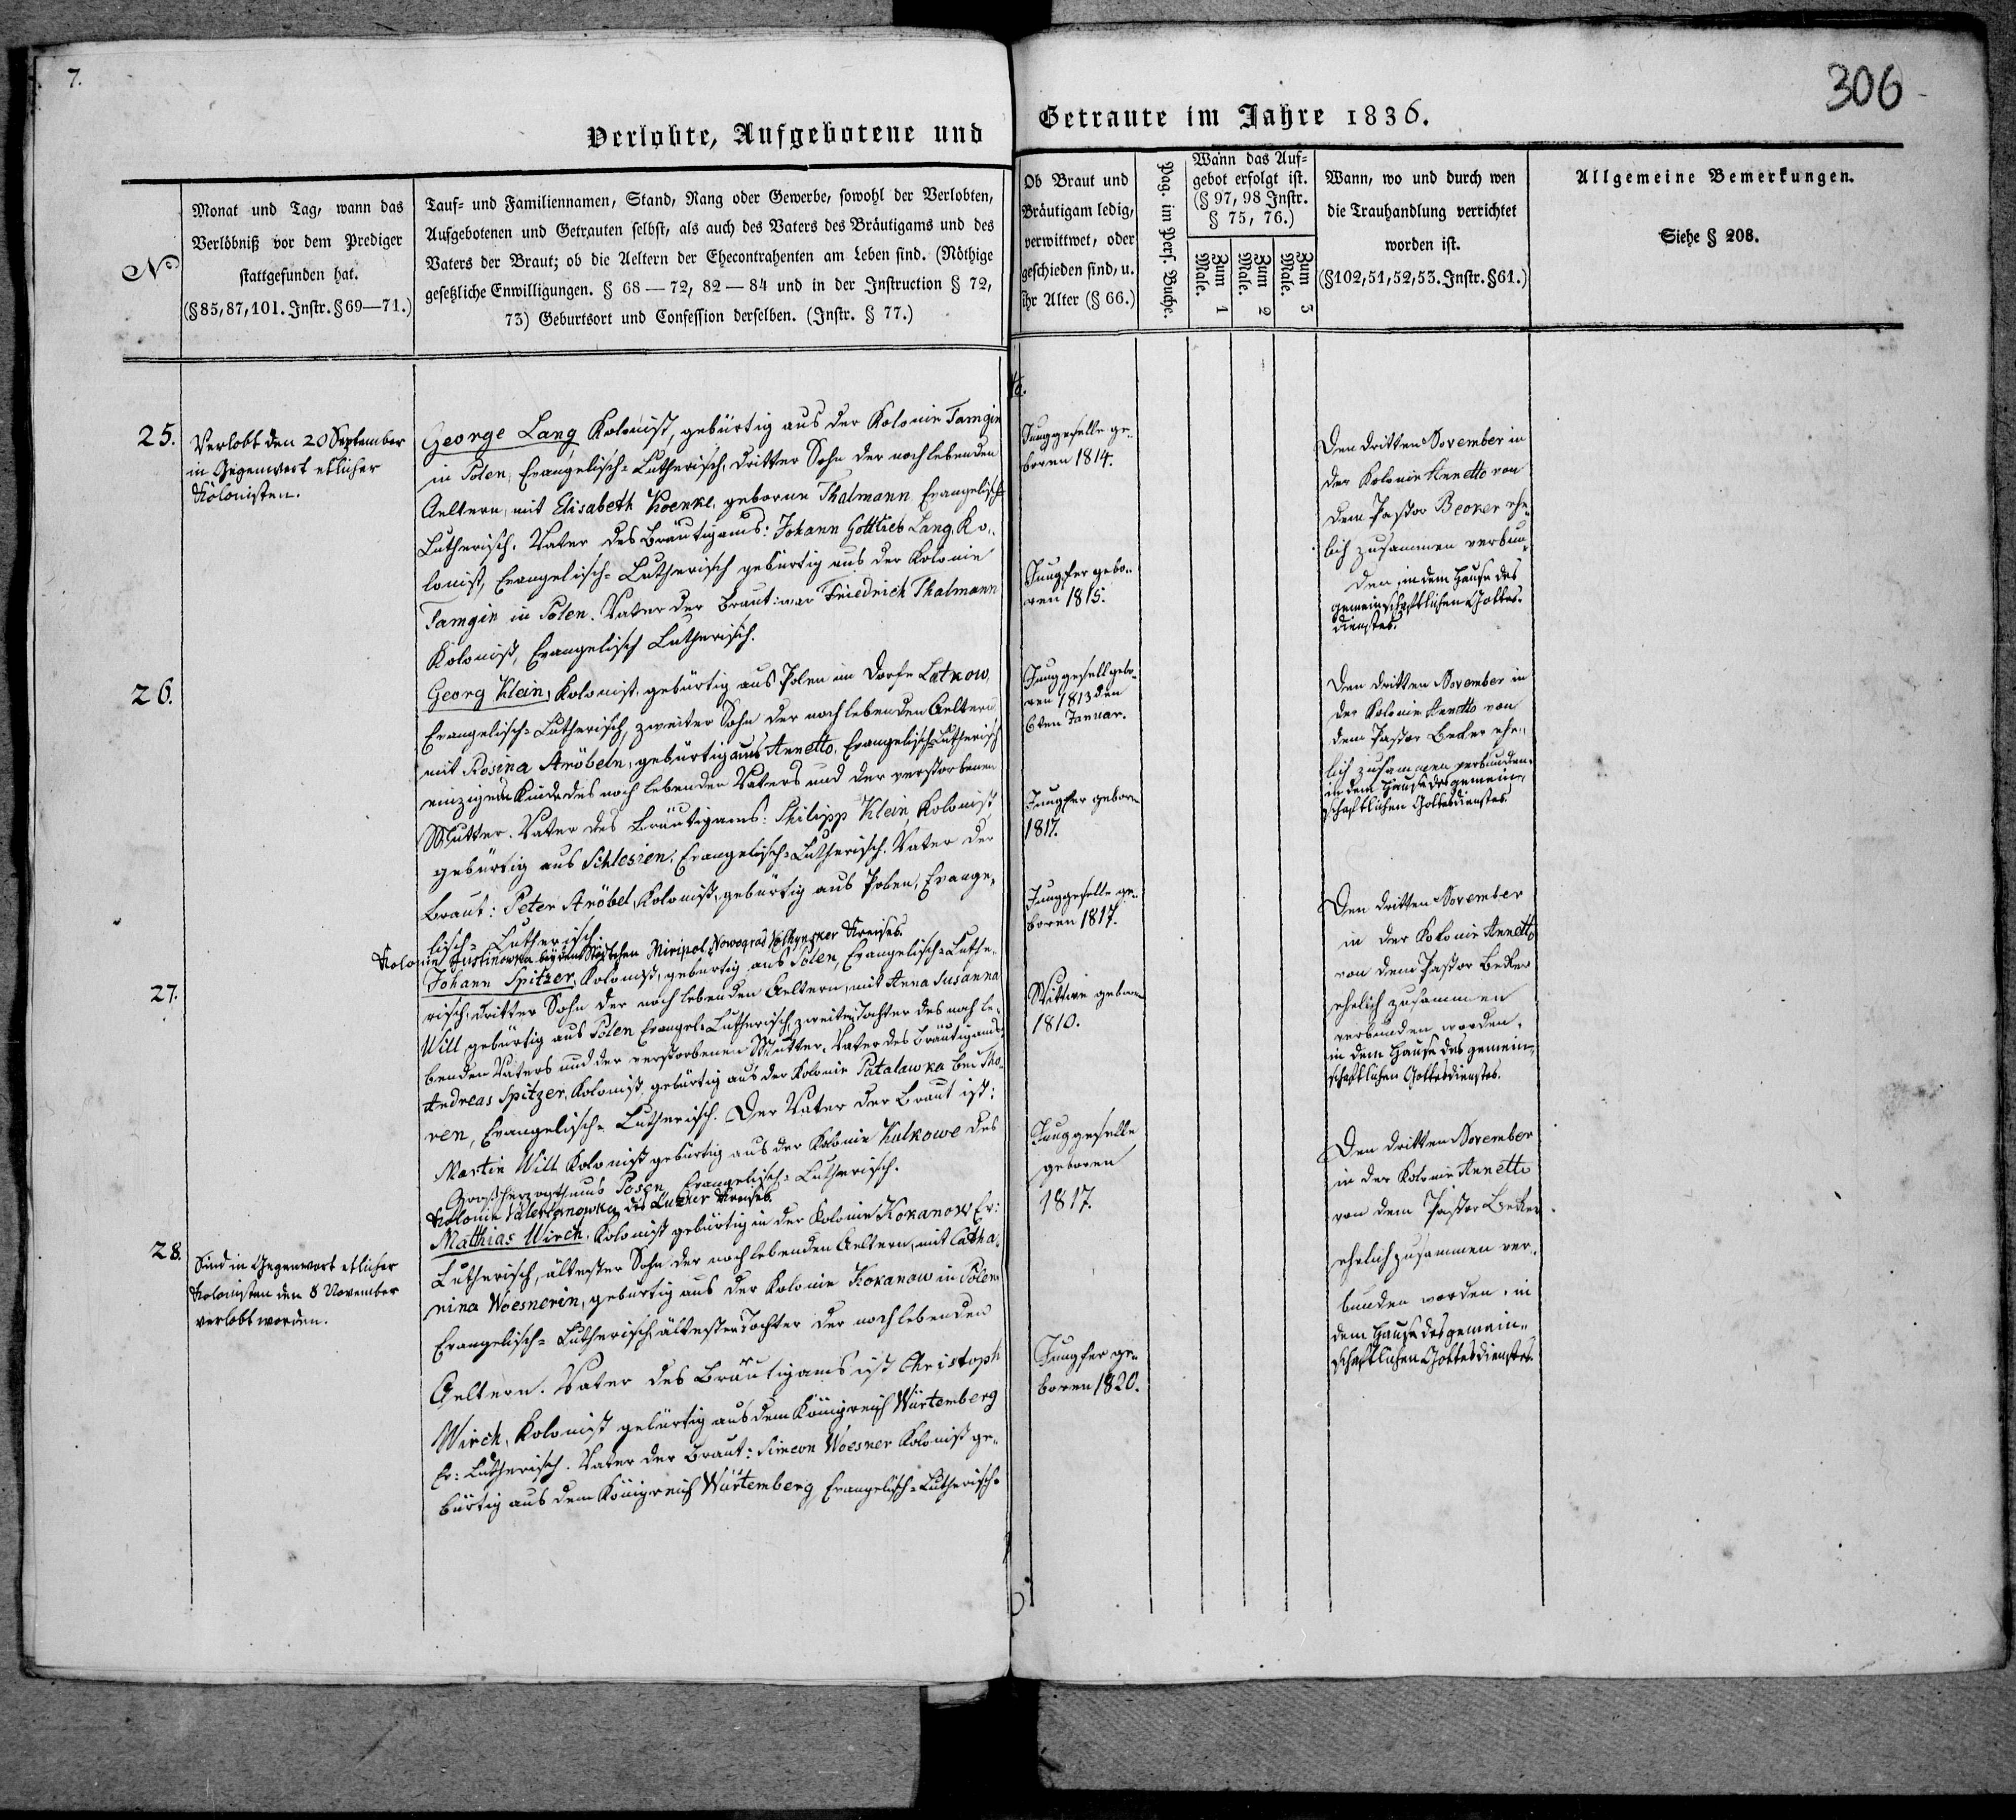 7.
306
Verlobte, Aufgebotene und
Getraute im Jahre 1836.
No
Monat und Tag, wann das
Verlöbniß vor dem Prediger
stattgefunden hat.
(§ 85, 87, 101. Instr. § 69—71.)
Tauf- und Familiennamen, Stand, Rang oder Gewerbe, sowohl der Verlobten,
Aufgebotenen und Getrauten selbst, als auch des Vaters des Bräutigams und des
Vaters der Braut; ob die Aeltern der Ehecontrahenten am Leben sind. (Nöthige
gesetzliche Enwilligungen. § 68 — 72, 82 — 84 und in der Instruction § 72,
73) Geburtsort und Confession derselben. (Instr. § 77.)
Ob Braut und
Bräutigam ledig,
verwittwet, oder
geschieden sind, u.
ihr Alter (§ 66.)
Pag. im Pers. Buche.
Wann das Auf-
gebot erfolgt ist.
(§ 97, 98 Instr.
§ 75, 76.)
Zum 1
Male.
Zum 2
Male.
Zum 3
Male.
Wann, wo und durch wen
die Trauhandlung verrichtet
worden ist.
(§ 102, 51, 52, 53. Instr. § 61.)
Allgemeine Bemerkungen.
Siehe § 208.
25.
Verlobt den 20 September
in Gegenwart etlicher
Kolonisten.
George Lang Kolonist, gebürtig aus der Kolonie Tamgin
in Polen, Evangelisch-Lutherisch, dritter Sohn der noch lebenden
Aeltern, mit Elisabeth Koenke, geborne Thalmann Evangelisch-
Lutherisch. Vater des Bräutigams: Johann Gottlieb Lang, Ko-
lonist, Evangelisch-Lutherisch gebürtig aus der Kolonie
Tamgin in Polen. Vater der Braut: war Friedrich Thalmann
Kolonist, Evangelisch Lutherisch.
Junggeselle ge-
boren 1814.
Jungfer gebo-
ren 1815.
Den dritten November in
der Kolonie Annetto von
dem Pastor Becker ehe-
lich zusammen verbun-
den, in dem Hause des
gemeinschaftlichen Gottes-
dienstes.
26.
Georg Klein, Kolonist, gebürtig aus Polen im Dorfe Latkow,
Evangelisch-Lutherisch, zweiter Sohn der noch lebenden Aeltern,
mit Rosina Aröbeln, gebürtig aus Annetto, Evangelisch-Lutherisch
einzigem Kinde des noch lebenden Vaters und der verstorbenen
Mutter. Vater des Bräutigams: Philipp Klein, Kolonist,
gebürtig aus Schlesien, Evangelisch-Lutherisch. Vater der
Braut: Peter Aröbel, Kolonist, gebürtig aus Polen, Evange-
lisch-Lutherisch.
Junggesell gebo-
ren 1813 den
6ten Januar.
Jungfer geboren
1817.
Den dritten November in
der Kolonie Annetto von
dem Pastor Becker ehe-
lich zusammen verbunden
in dem Hause des gemein-
schaftlichen Gottesdienstes.
27.
Kolonie Justinowka bey dem Städtchen Miripol, Nowograd Volhynsker Kreises.
Johann Spitzer, Kolonist, gebürtig aus Polen, Evangelisch-Luthe-
risch, dritter Sohn der noch lebenden Aeltern, mit Anna Susanna
Will gebürtig aus Polen Evangel-Lutherisch, zweiten Tochter des noch le-
benden Vaters und der verstorbenen Mutter. Vater des Bräutigams:
Andreas Spitzer, Kolonist, gebürtig aus der Kolonie Patalawka bei Tho-
ren, Evangelisch-Lutherisch. Der Vater der Braut ist:
Martin Will Kolonist gebürtig aus der Kolonie Kulkowe des
Großherzogthums Posen Evangelisch-Lutherisch.
Junggeselle ge-
boren 1817.
Wittwe geboren
1810.
Den dritten November
in der Kolonie Annetto
von dem Pastor Becker
ehelich zusammen
verbunden worden,
in dem Hause des gemein-
schaftlichen Gottesdienstes.
28.
Sind in Gegenwart etlicher
Kolonisten den 8 November
verlobt worden.
Kolonie Valerianowka des Luzker Kreises.
Matthias Wirch, Kolonist gebürtig in der Kolonie Kokanow Ev:
Lutherisch, ältester Sohn der noch lebenden Aeltern, mit Catha-
rina Woesnerin, gebürtig aus der Kolonie Kokanow in Polen,
Evangelisch-Lutherisch, ältesten Tochter der noch lebenden
Aeltern. Vater des Bräutigams ist Christoph
Wirch, Kolonist gebürtig aus dem Königreich Würtemberg
Ev: Lutherisch. Vater der Braut: Simeon Woesner Kolonist ge-
bürtig aus dem Königreich Würtemberg, Evangelisch-Lutherisch.
Junggeselle
geboren
1817.
Jungfer ge-
boren 1820.
Den dritten November
in der Kolonie Annetto
von dem Pastor Becker
ehelich zusammen ver-
bunden worden, in
dem Hause des gemein-
schaftlichen Gottesdienstes.